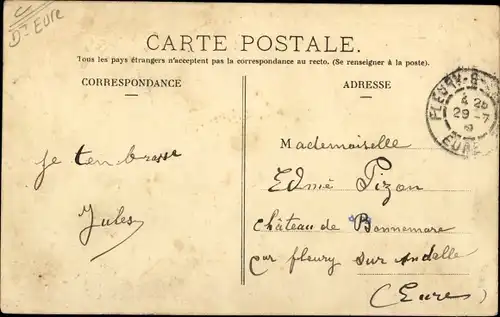 C
Dt Eure
CARTE POSTALE.
Tous les pays étrangers n'acceptent pas la correspondance au recto. (Se renseigner à la poste).
CORRESPONDANCE
ADRESSE
FLEURY-S-
4
29 -7
EURE
Je t'embrasse
Jules
Mademoiselle
Edmé Pizon
Château de Bonnemare
par fleury sur Andelle
(Eure)